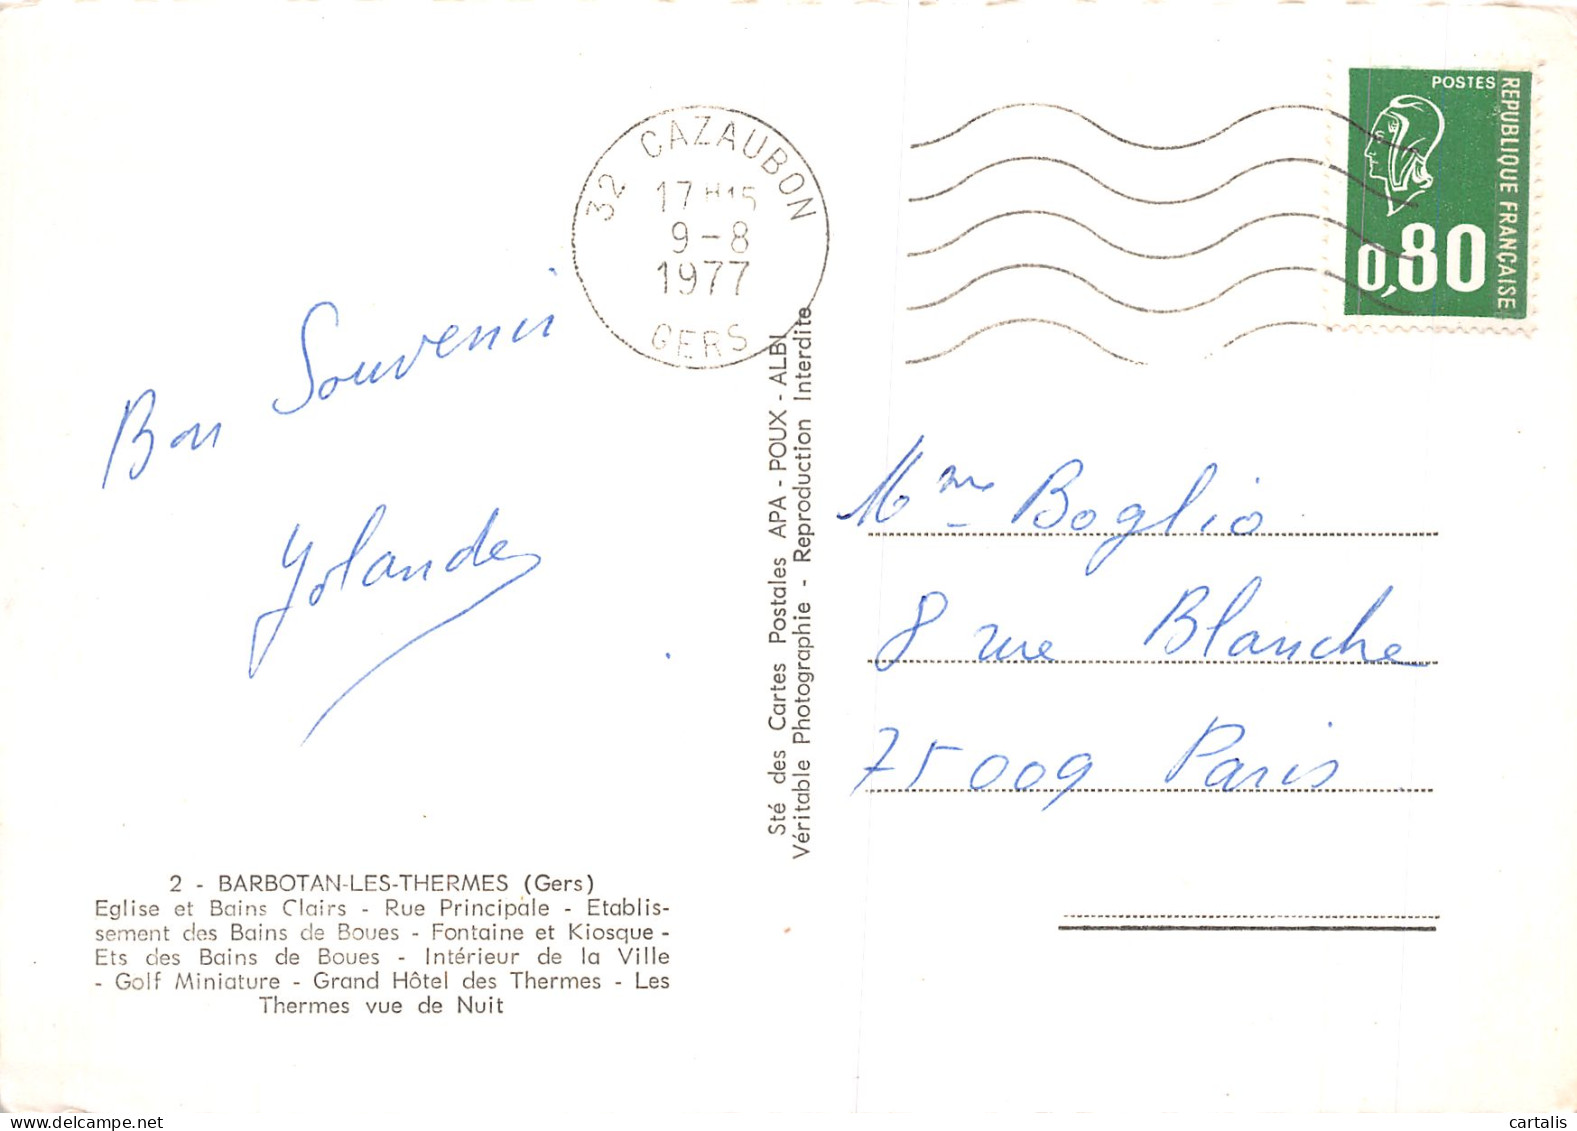 32 CAZAUBON
17 H15
9-8
1977
GERS
POSTES
REPUBLIQUE FRANÇAISE
0,80
Bon Souvenir
Yolande
Sté des Cartes Postales APA - POUX - ALBI
Véritable Photographie - Reproduction Interdite
Mme Boglio
8 rue Blanche
75009 Paris
2 - BARBOTAN-LES-THERMES (Gers)
Eglise et Bains Clairs - Rue Principale - Etablis-
sement des Bains de Boues - Fontaine et Kiosque -
Ets des Bains de Boues - Intérieur de la Ville
- Golf Miniature - Grand Hôtel des Thermes - Les
Thermes vue de Nuit
cartalis